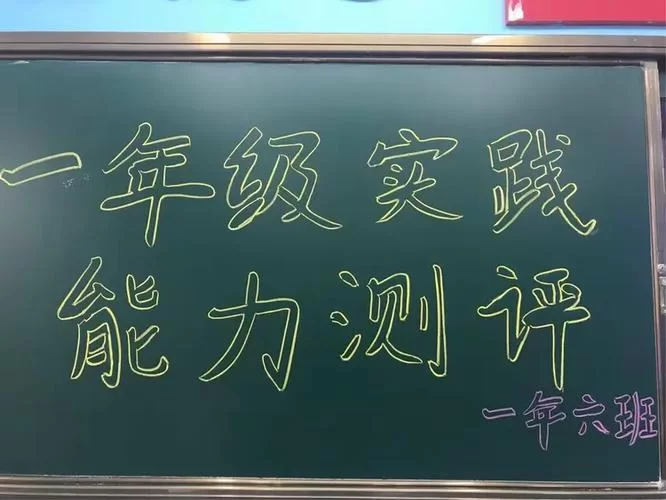 一年级实践
能力测评
一年六班